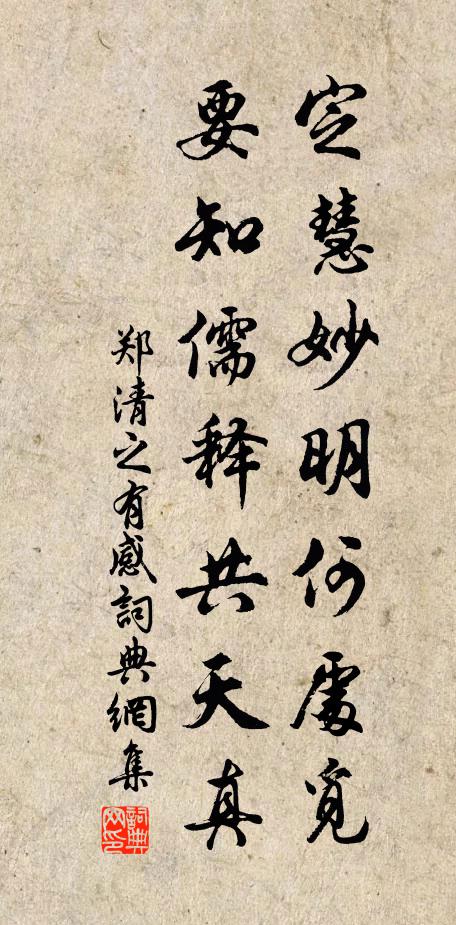 定慧妙明何處覓
要知儒释共天真
郑清之有感詞典網集
詞典网印